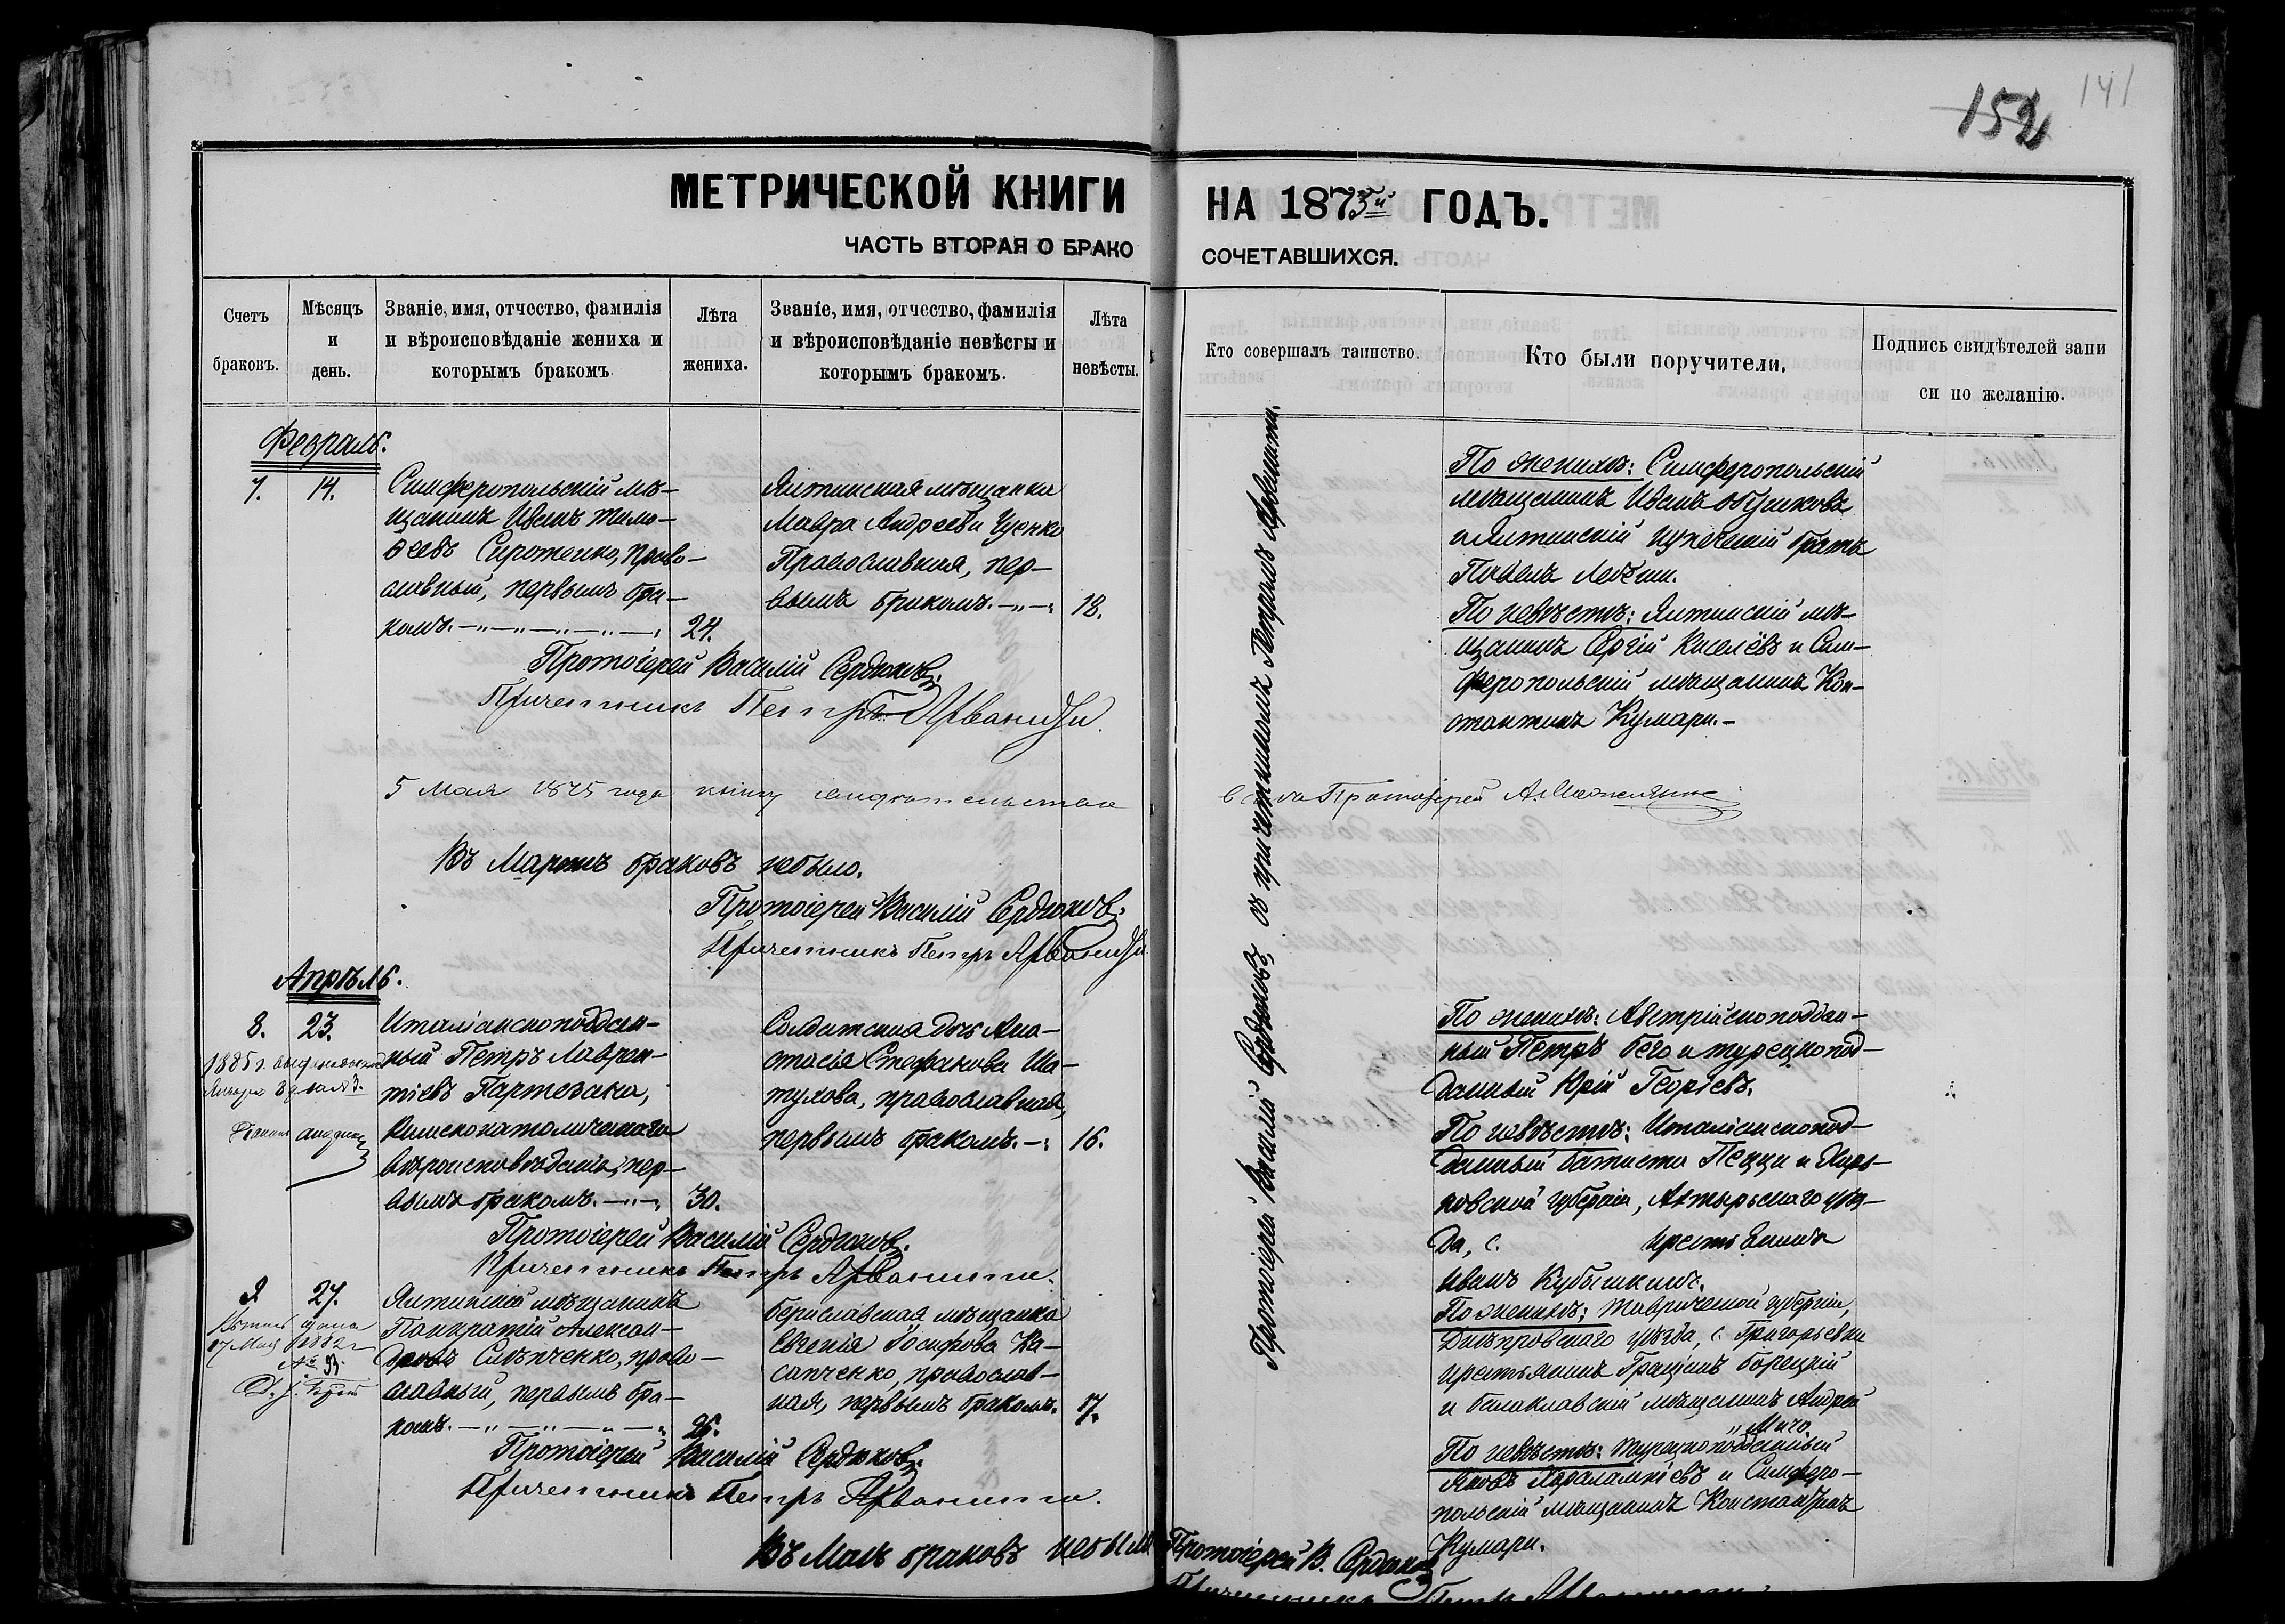 152
141
МЕТРИЧЕСКОЙ КНИГИ НА 1873й ГОДЪ.
ЧАСТЬ ВТОРАЯ О БРАКОСОЧЕТАВШИХСЯ.
Счетъ браковъ.
Мѣсяцъ и день.
Званіе, имя, отчество, фамилія
и вѣроисповѣданіе жениха и
которымъ бракомъ.
Лѣта
жениха.
Званіе, имя, отчество, фамилія
и вѣроисповѣданіе невѣсты и
которымъ бракомъ.
Лѣта
невѣсты.
Кто совершалъ таинство.
Кто были поручители.
Подпись свидѣтелей запи
си по желанію.
Февраль.
7. 14.
Симферопольскій мѣ-
щанинъ Иванъ Тимо-
ѳеевъ Сиротенко, право-
славный, первымъ бра-
комъ.
24.
Ялтинская мѣщанка
Мавра Андреева
Православная, пер-
вымъ бракомъ.
18.
По женихѣ: Симферопольскій
мѣщанинъ Иванъ
и Ялтинскій купеческій братъ
Павелъ
По невѣстѣ: Ялтинскій мѣ-
щанинъ Сергій Киселёвъ и Сим-
феропольскій мѣщанинъ Кон-
стантинъ Кумари.
Протоіерей Василій Сердюковъ.
Причетникъ Петръ
5 Мая 1875 года книгу
Протоіерей
Въ Мартѣ браковъ небыло.
Протоіерей Василій Сердюковъ.
Причетникъ Петръ
Протоіерей Василій Сердюковъ, съ причетникомъ Петромъ
Апрѣль.
8. 23.
1885 г.
Января
Итальянскоподдан-
ный Петръ Лаврен-
тіевъ Партезана,
Римскокатолическаго
вѣроисповѣданія, пер-
вымъ бракомъ.
30.
Солдатская дочь Ана-
стасія Стефанова Ша-
тулова, православная,
первымъ бракомъ.
16.
По женихѣ: Австрійскоподдан-
ный Петръ Бего и турецкопод-
данный Юрій Георгіевъ.
По невѣстѣ: Итальянскопод-
данный Батиста Пецци и Харь-
ковской губерніи, Ахтырскаго уѣз-
да, с. крестьянинъ
Иванъ Кубышкинъ.
Протоіерей Василій Сердюковъ.
Причетникъ Петръ
9. 27.
17 Мая 1882 г.
Ялтинскій мѣщанинъ
Панкратій Алексан-
дровъ Слѣпченко, право-
славный, первымъ бра-
комъ.
Бериславская мѣщанка
Евгенія Іосифова Ка-
сапченко, православ-
ная, первымъ бракомъ.
17.
По женихѣ: Таврической губерніи,
Днѣпровскаго уѣзда, с. Григорьевки
крестьянинъ Борецкій
и балаклавскій мѣщанинъ Андрей
По невѣстѣ: турецкоподданный
Яковъ Харалампіевъ и Симферо-
польскій мѣщанинъ Константинъ
Кумари.
Протоіерей Василій Сердюковъ.
Причетникъ Петръ
Въ Маѣ браковъ небыло
Протоіерей В. Сердюковъ